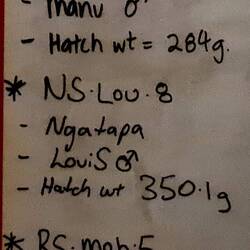 - Manu ♂
- Hatch wt = 284g.
* NS.Lou.8
- Ngatapa
- Louis ♂
- Hatch wt 350.1g
* RS.moh.5